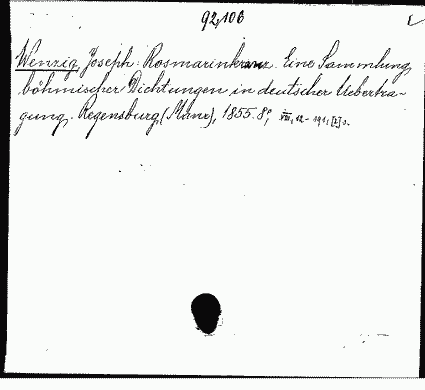 92,106
Wenzig, Joseph: Rosmarinkranz. Eine Sammlung
böhmischer Dichtungen in deutscher Uebertra-
gung. Regensburg, (Manz), 1855. 8°,